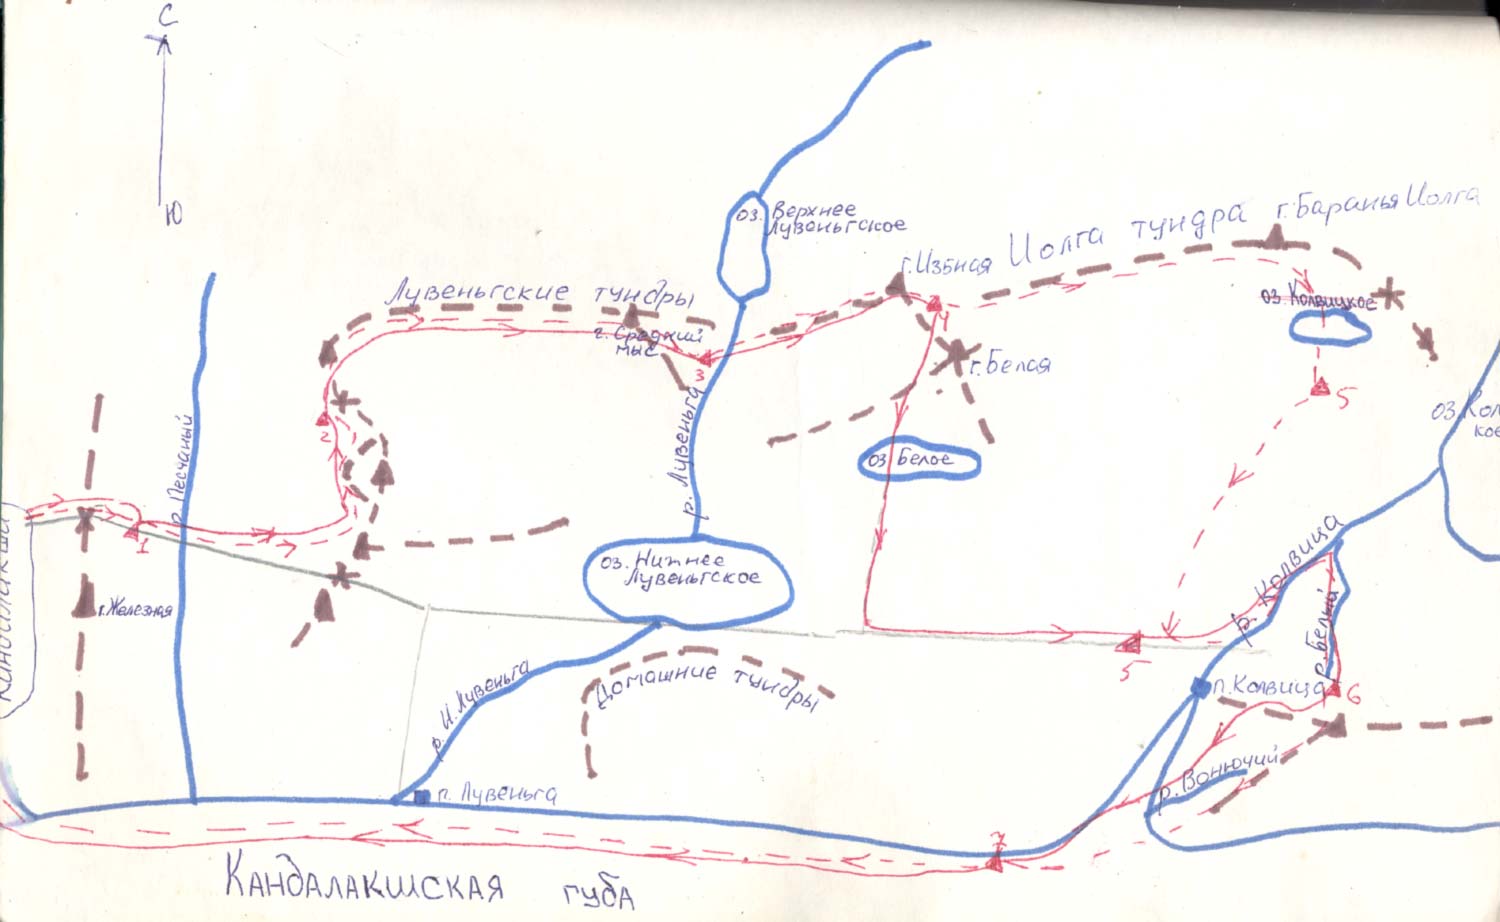 С
Ю
оз. Верхнее
Лувеньгское
Лувеньгские тундры
г. Средний
мыс
г. Избная
Иолга тундра
г. Баранья Иолга
оз. Колвицкое
г. Белая
оз. Белое
3
4
5
2
1
р. Песчаный
р. Лувеньга
оз. Нижнее
Лувеньгское
г. Железная
Кандалакша
р. Н. Лувеньга
Домашние тундры
п. Лувеньга
р. Колвица
р. Белый
п. Колвица
5
6
р. Вонючий
7
оз. Кол
кое
Кандалакшская губа